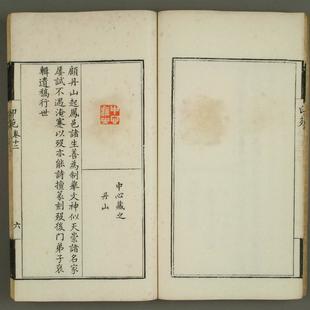 中心藏之
丹山
顧丹山起鳳邑諸生善為制舉文神似天崇諸名家
屢試不遇淹蹇以歿亦能詩擅篆刻歿後門弟子裒
輯遺稿行世
卷十二
六